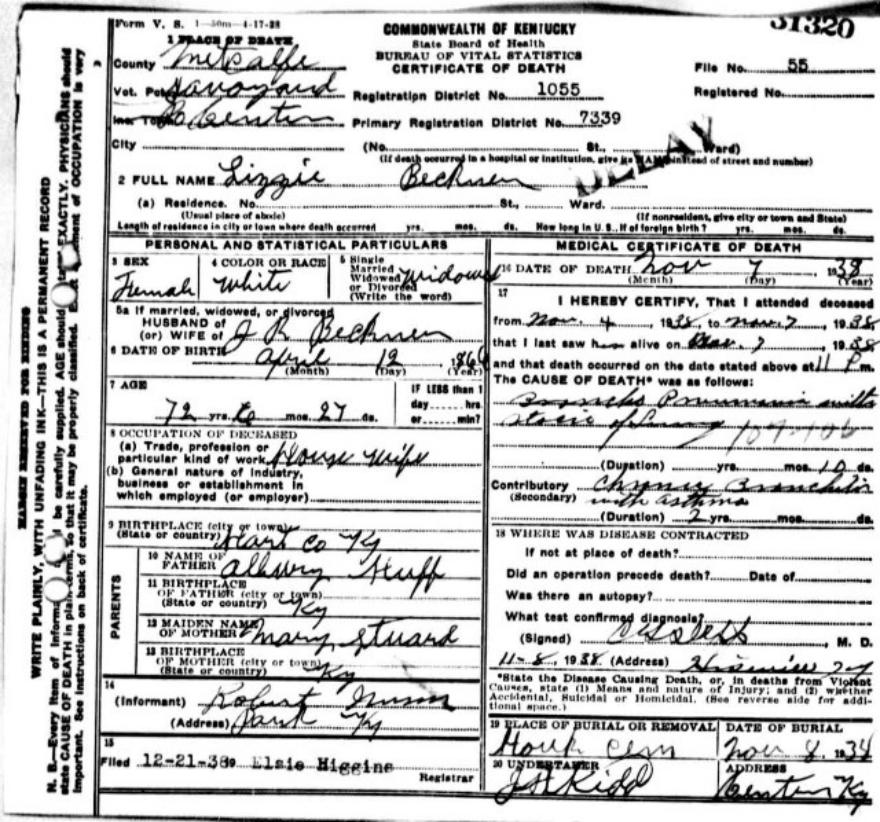 Form V. S. 1—50m—4-17-38
31320
COMMONWEALTH OF KENTUCKY
State Board of Health
BUREAU OF VITAL STATISTICS
CERTIFICATE OF DEATH
1 PLACE OF DEATH
County Metcalfe
File No. 55
Vot. Pct. Savoyard
Registration District No. 1055
Registered No.
Inc. Town Center
Primary Registration District No. 7339
City (No. St., Ward)
(If death occurred in a hospital or institution, give its NAME instead of street and number)
DELAY
2 FULL NAME Lizzie
(a) Residence. No. St., Ward.
(Usual place of abode) (If nonresident, give city or town and State)
Length of residence in city or town where death occurred yrs. mos. ds. How long in U. S., if of foreign birth? yrs. mos. ds.
PERSONAL AND STATISTICAL PARTICULARS
3 SEX Female
4 COLOR OR RACE White
5 Single Married Widowed or Divorced (Write the word) Widowed
5a If married, widowed, or divorced
HUSBAND of
(or) WIFE of J R
6 DATE OF BIRTH April 12 1866
(Month) (Day) (Year)
7 AGE
72 yrs. 6 mos. 27 ds.
IF LESS than 1 day hrs. or min?
8 OCCUPATION OF DECEASED
(a) Trade, profession or
particular kind of work House wife
(b) General nature of industry,
business or establishment in
which employed (or employer)
9 BIRTHPLACE (city or town)
(State or country) Hart Co Ky
PARENTS
10 NAME OF
FATHER Huff
11 BIRTHPLACE
OF FATHER (city or town)
(State or country) Ky
12 MAIDEN NAME
OF MOTHER Mary Stuard
13 BIRTHPLACE
OF MOTHER (city or town)
(State or country) Ky
14
(Informant) Robert
(Address) Park Ky
15
Filed 12-21-389 Elsie Higgins
Registrar
MEDICAL CERTIFICATE OF DEATH
16 DATE OF DEATH Nov 7 1938
(Month) (Day) (Year)
17
I HEREBY CERTIFY, That I attended deceased
from Nov. 4, 1938, to Nov. 7, 1938,
that I last saw h alive on Nov. 7, 1938
and that death occurred on the date stated above at 11 P m.
The CAUSE OF DEATH* was as follows:
Broncho Pneumonia with
of Lung
(Duration) yrs. mos. 10 ds.
Contributory Chronic Bronchitis
(Secondary) with asthma
(Duration) 2 yrs. mos. ds.
18 WHERE WAS DISEASE CONTRACTED
If not at place of death?
Did an operation precede death? Date of
Was there an autopsy?
What test confirmed diagnosis?
(Signed) , M. D.
11-8, 1938 (Address)
*State the Disease Causing Death, or, in deaths from Violent
Causes, state (1) Means and nature of Injury; and (2) whether
Accidental, Suicidal or Homicidal. (See reverse side for addi-
tional space.)
19 PLACE OF BURIAL OR REMOVAL
Cem
DATE OF BURIAL
Nov 8 1938
20 UNDERTAKER
Kidd
ADDRESS
Center Ky
MARGIN RESERVED FOR BINDING
WRITE PLAINLY, WITH UNFADING INK—THIS IS A PERMANENT RECORD
N. B.—Every item of information be carefully supplied. AGE should EXACTLY. PHYSICIANS should
state CAUSE OF DEATH in plain terms, so that it may be properly classified. of OCCUPATION is very
important. See instructions on back of certificate.